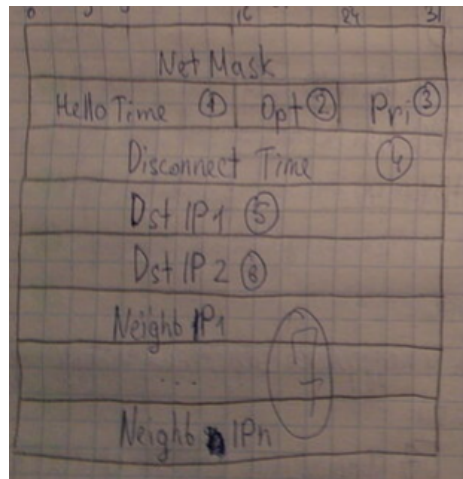 16 24 31
Net Mask
Hello Time ① Opt ② Pri ③
Disconnect Time ④
Dst IP1 ⑤
Dst IP2 ⑥
Neighb IP1
... 7
Neighb IPn